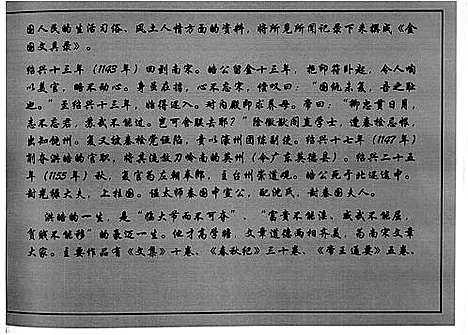 国人民的生活习俗、风土人情方面的资料，将所见所闻记录下来撰成《金
国文具录》。
绍兴十三年（1143年）回到南宋。皓公留金十三年，把印符卧起，令人啗
以美官，略不动心。身虽在胡，心不忘宋，憎叹曰：“国统未复，吾之耻
也。”至绍兴十三年，始得还入。对内殿即求养母。帝曰：“卿忠贯日月，
志不忘君，苏武不能过。岂可舍朕去耶？”除徽猷阁直学士，遭秦桧忌恨，
出知饶州。复又被秦桧党诬陷，责以濠州团练副使。绍兴十七年（1147年）
削夺洪皓的官职，将其流放到岭南的英州（今广东英德县）。绍兴二十五
年（1155年）秋，复官为左朝奉郎，主台州崇道观。皓公死于北返途中。
封光禄大夫，上柱国。谥太师秦国中宣公，配沈氏，封秦国夫人。
洪皓的一生，是“临大节而不可夺”、“富贵不能淫、威武不能屈，
贫贱不能移”的豪迈一生。他才高学赡，文章道德两相齐美，蔚南宋文章
大家。主要作品有《文集》十卷、《春秋纪》三十卷、《帝王通要》五卷、